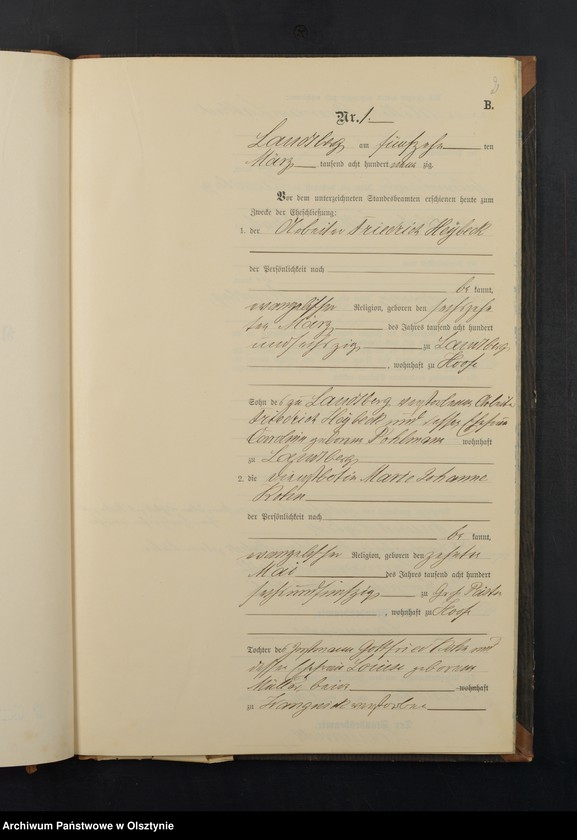 3
B.
Nr. 1.
Landsberg am fünfzehn ten
März tausend acht hundert neun zig.
Vor dem unterzeichneten Standesbeamten erschienen heute zum
Zwecke der Eheschließung:
1. der Arbeiter Friedrich Heybeck
der Persönlichkeit nach
be kannt,
evangelischer Religion, geboren den
ten März des Jahres tausend acht hundert
undsechszig zu Landsberg
, wohnhaft zu Hoofe
Sohn des zu Landsberg verstorbenen
Friedrich Heybeck und dessen Ehefrau
Caroline geborenen Pohlmann wohnhaft
zu Landsberg
2. die Marie Johanne
der Persönlichkeit nach
be kannt,
evangelischer Religion, geboren den zehnten
Mai des Jahres tausend acht hundert
sechsundsechszig zu
, wohnhaft zu Hoofe
Tochter des Gottfried und
dessen Ehefrau Louise geborenen
Müller, beide wohnhaft
zu verstorben
Archiwum Państwowe w Olsztynie